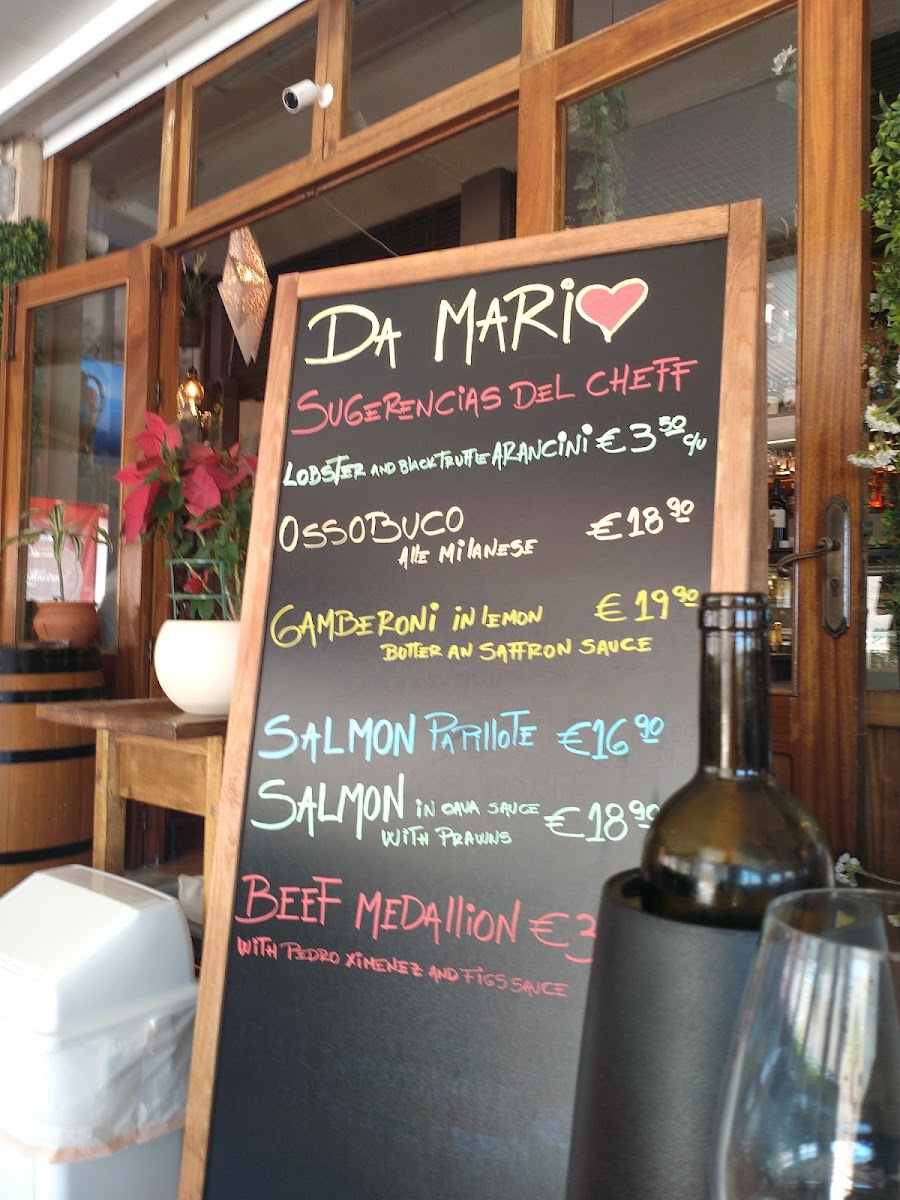 DA MARIO
SUGERENCIAS DEL CHEFF
LOBSTER AND BLACK TRUFFLE ARANCINI € 3,50 c/u
OSSOBUCO € 18,90
Alle MilANESE
GAMBERONI iN lEMON € 19,90
BUTTER AN SAFFRON SAUCE
SALMON PAPillOTE € 16,90
SALMON iN CAVA SAUCE € 18,90
WITH PRAWNS
BEEF MEDAlliON € 3
WITH PEDRO XiMENEZ AND FIGS SAUCE